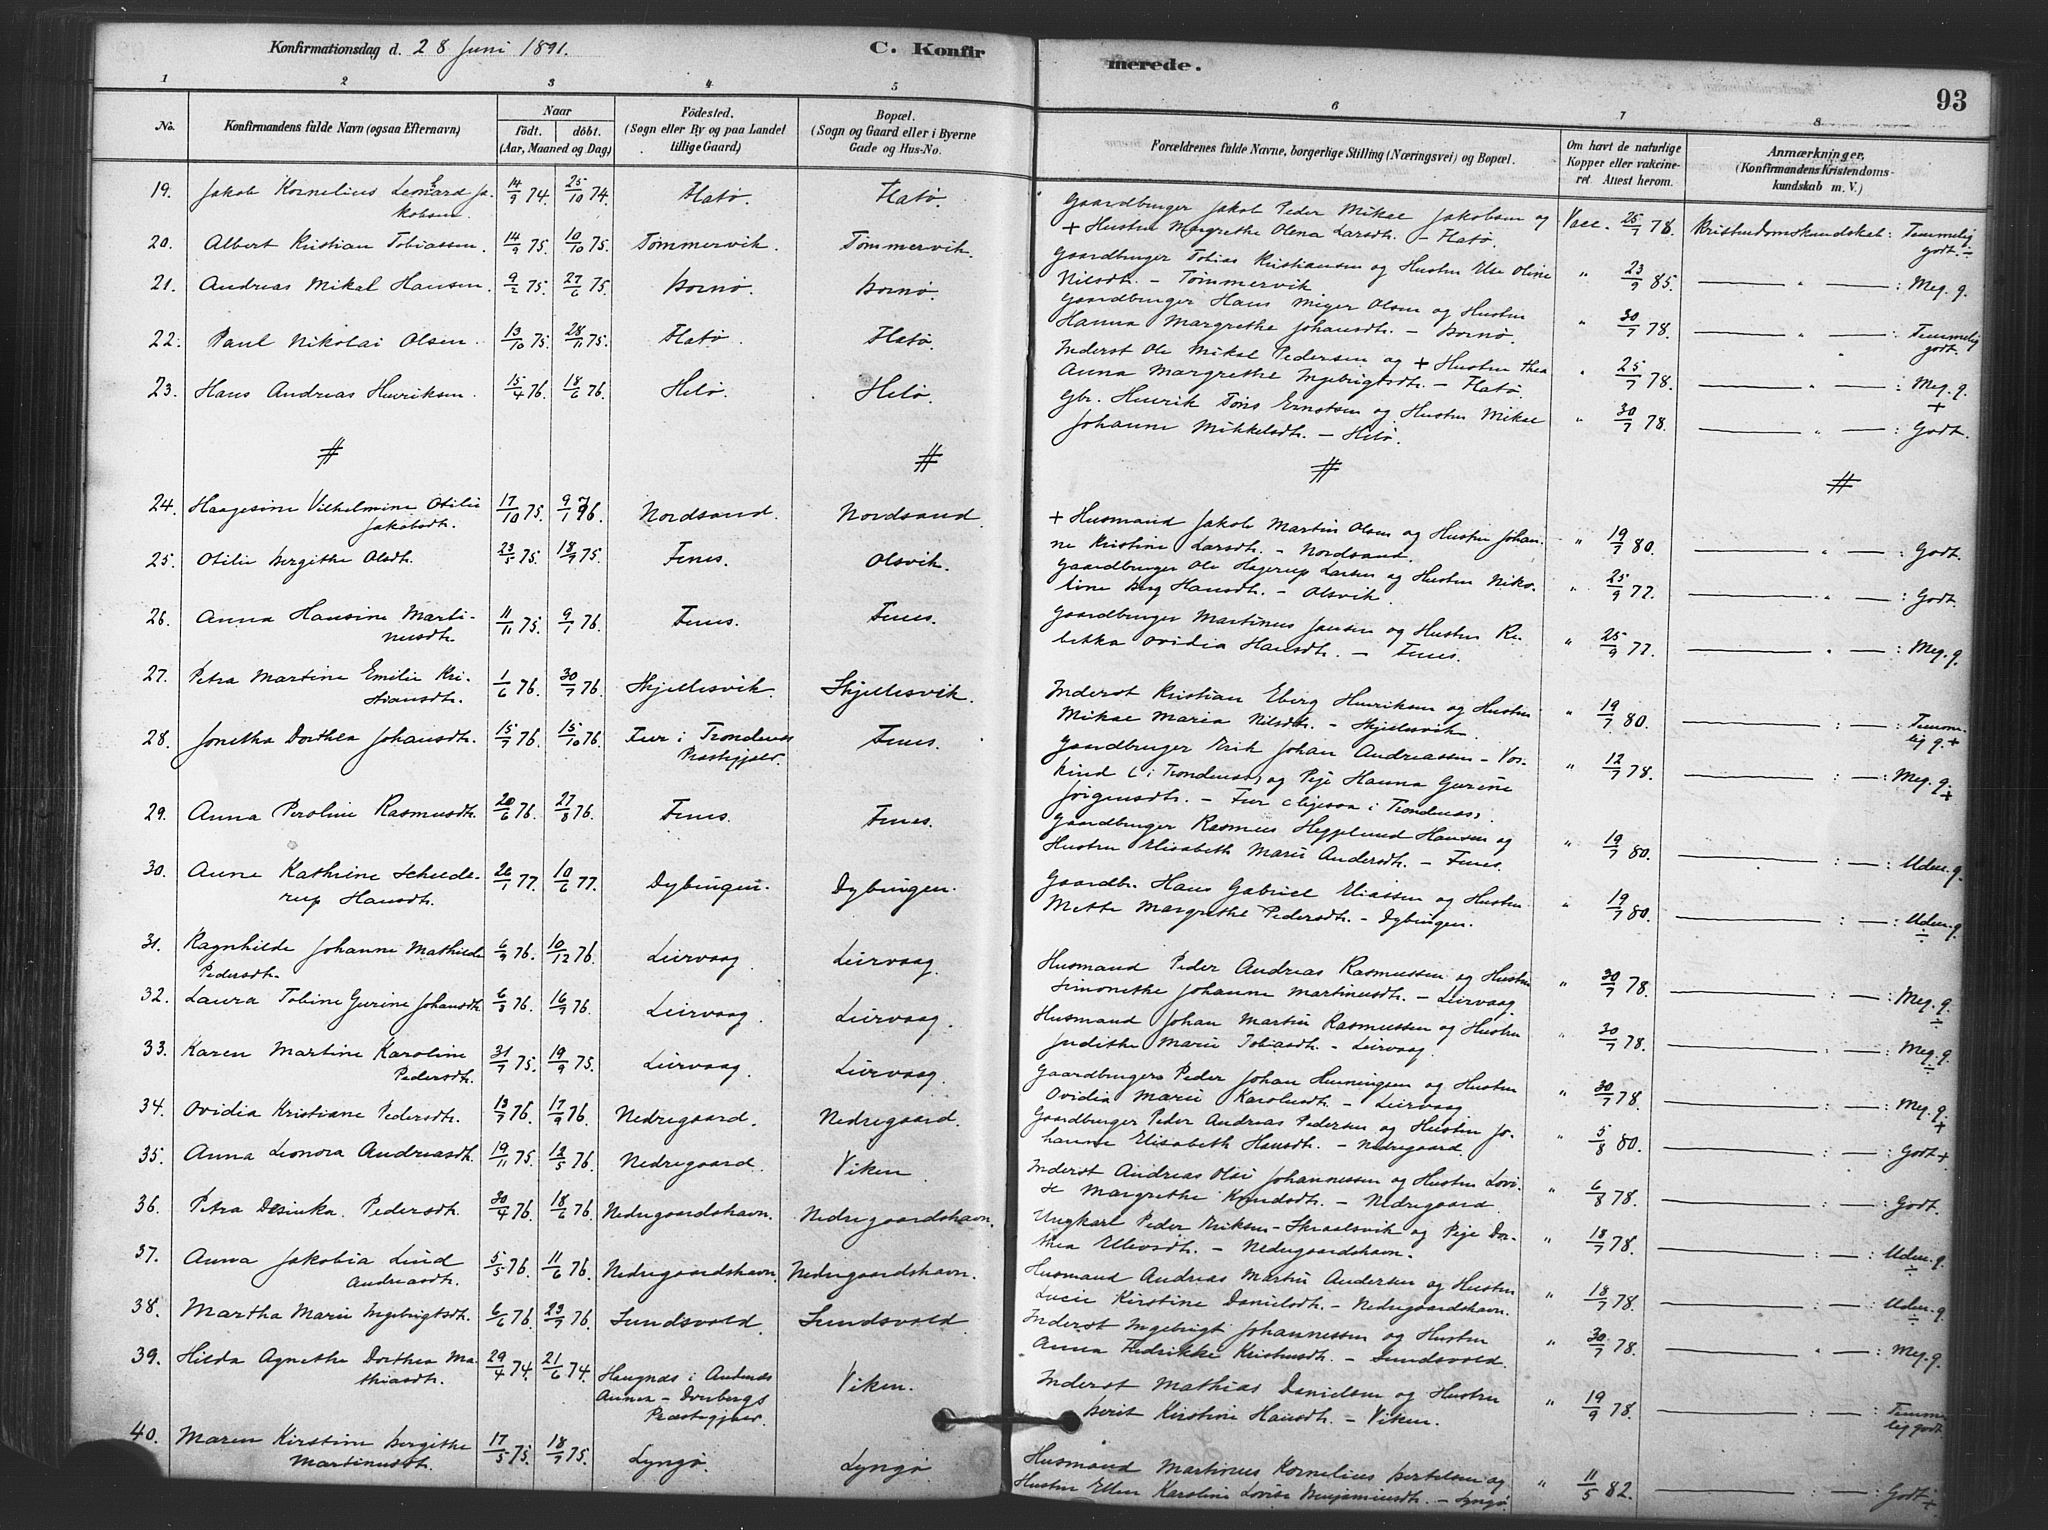 Konfirmationsdag d. 28 Juni 1891.
C. Konfir
merede.
93
1 2 3 4 5 6 7 8
No.
Konfirmandens fulde Navn (ogsaa Efternavn)
Naar
födt. döbt.
(Aar, Maaned og Dag)
Födested.
(Sogn eller By og paa Landet
tillige Gaard)
Bopæl.
(Sogn og Gaard eller i Byerne
Gade og Hus-No.
Forældrenes fulde Navne, borgerlige Stilling (Næringsvei) og Bopæl.
Om havt de naturlige
Kopper eller vakcine-
ret Attest herom.
Anmærkninger,
(Konfirmandens Kristendoms-
kundskab m. V.)
19. Jakob Kornelius Leonhard Ja- 14/9 74. 25/10 74. Flatø. Flatø. Gaardbruger Jakob Peder Mikal Jakobsen og Vacc. 25/7 78. Kristendomskundskab: Temmelig
kobsen + Hustru Margrethe Olena Larsdtr. – Flatø. godt. ÷
20. Albert Kristian Tobiassen. 14/9 75. 10/10 75. Tømmervik. Tømmervik. Gaardbruger Tobias Kristiansen og Hustru Else Oline " 23/9 85. " : Meg. g.
Nilsdtr. – Tømmervik
21. Andreas Mikal Hansen. 9/2 75. 27/6 75. Bornø. Bornø. Gaardbruger Hans Meyer Olsen og Hustru " 30/7 78. " : Temmelig
Hanna Margrethe Johansdtr. – Bornø. godt.
22. Paul Nikolai Olsen. 13/10 75. 28/11 75. Flatø. Flatø. Inderst Ole Mikal Pedersen og + Hustru Thea " 25/7 78. " : Meg. g.
Anna Margrethe Ingebrigtsdtr. – Flatø. +
23. Hans Andreas Henriksen. 15/4 76. 18/6 76. Helø. Helø. Gbr. Henrik Tøns Ernstsen og Hustru Mikal " 30/7 78. " : Godt.
Johanne Mikkelsdtr. – Helø.
# # # #
24. Haagesine Vilhelmine Otilie 17/10 75. 9/1 76. Nordsand. Nordsand. + Husmand Jakob Martin Olsen og Hustru Johan- " 19/7 80. " : Godt.
Jakobsdtr. ne Kristine Larsdtr. – Nordsand.
25. Otilie Bergithe Olsdtr. 23/5 75. 18/9 75. Finnes. Olsvik. Gaardbruger Ole Hagerup Larsen og Hustru Niko- " 25/9 77. " : Godt.
line Berg Hansdtr. – Olsvik.
26. Anna Hansine Marti- 11/11 75. 9/7 76. Finnes. Finnes. Gaardbruger Martinus Jansen og Hustru Re- " 25/9 77. " : Meg. g.
nusdtr. bekka Ovidia Hansdtr. – Finnes.
27. Petra Martine Emilie Kri- 1/6 76. 30/7 76. Skjellesvik. Skjellesvik. Inderst Kristian Eberg Henriksen og Hustru " 19/7 80. : Temme-
stiansdtr. Mikal Maria Nilsdtr. – Skjellesvik. lig g. +
28. Jonetha Dorthea Johansdtr. 15/7 76. 15/10 76. Fur i Trondenes Finnes. Gaardbruger Erik Johan Andreassen – Vor- " 12/7 78. : Meg. g. +
Præstegjeld. kind (i Trondenes) og Pige Hanna Gurine
Jørgensdtr. – Fur (ligesaa i Trondenes).
29. Anna Peroline Rasmusdtr. 20/6 76. 27/8 76. Finnes. Finnes. Gaardbruger Rasmus Heggelund Hansen og " 19/7 80. : Uden. g.
Hustru Elisabeth Marie Andersdtr. – Finnes.
30. Anne Kathrine Schelde- 26/1 77. 10/6 77. Dybingen. Dybingen. Gaardbr. Hans Gabriel Eliassen og Hustru " 19/7 80. : Uden. g.
rup Hansdtr. Mette Margrethe Pedersdtr. – Dybingen. ÷
31. Ragnhilde Johanne Mathilde 6/9 76. 10/12 76. Leirvaag. Leirvaag. Husmand Peder Andreas Rasmussen og Hustru " 30/7 78. : Meg. g.
Pedersdtr. Simonethe Johanne Martinusdtr. – Leirvaag. ÷
32. Laura Tobine Gurine Johansdtr. 6/8 76. 16/9 76. Leirvaag. Leirvaag. Husmand Johan Martin Rasmussen og Hustru " 30/7 78. : Meg. g.
Judithe Marie Tobiasdtr. – Leirvaag. ÷
33. Karen Martine Karoline 31/7 75. 19/9 75. Leirvaag. Leirvaag. Gaardbruger Peder Johan Henningsen og Hustru " 30/7 78. : Meg. g.
Pedersdtr. Ovidia Marie Karolusdtr. – Leirvaag +
34. Ovidia Kristiane Pedersdtr. 13/7 76. 17/9 76. Nedregaard. Nedregaard. Gaardbruger Peder Andreas Pedersen og Hustru Jo- " 5/8 80. : Godt +.
hanne Elisabeth Hansdtr. – Nedregaard.
35. Anna Leonora Andreasdtr. 19/11 75. 18/5 76. Nedregaard. Viken. Inderst Andreas Olai Johannessen og Hustru Lovi- " 6/8 78. : Godt.
se Margrethe Knudsdtr. – Nedregaard.
36. Petra Desinka Pedersdtr. 30/4 76. 18/6 76. Nedregaardshavn. Nedregaardshavn. Ungkarl Peder Eriksen – Skraalsvik og Pige Dor- " 18/7 78. : Uden. g.
thea Ellevsdtr. – Nedregaardshavn. ÷
37. Anna Jakobia Lind 5/5 76. 11/6 76. Nedregaardshavn. Nedregaardshavn. Husmand Andreas Martin Andersen og Hustru " 18/7 78. : Uden. g.
Andreasdtr. Lucie Kirstine Danielsdtr. – Nedregaardshavn. ÷
38. Martha Marie Ingebrigtsdtr. 6/6 76. 23/7 76. Sundsvold. Sundsvold. Inderst Ingebrigt Johannessen og Hustru " 30/7 78. " : Meg. g.
Anna Fredrikke Kristensdtr. – Sundsvold.
39. Hilda Agnethe Dorthea Ma- 29/4 74. 21/6 74. Haugnæs i Andenæs Viken. Inderst Mathias Danielsen og Hustru " 19/9 78. : Temme-
thiasdtr. Annex – Dverbergs Berit Kirstine Hansdtr. – Viken. lig godt
Præstegjeld.
40. Maren Kirstine Bergithe 17/5 75. 18/7 75. Lyngø. Lyngø. Husmand Martinus Kornelius Bertelsen og " 11/5 82. : Godt +
Martinusdtr. Hustru Ellen Karoline Lovise Benjaminsdtr. – Lyngø.